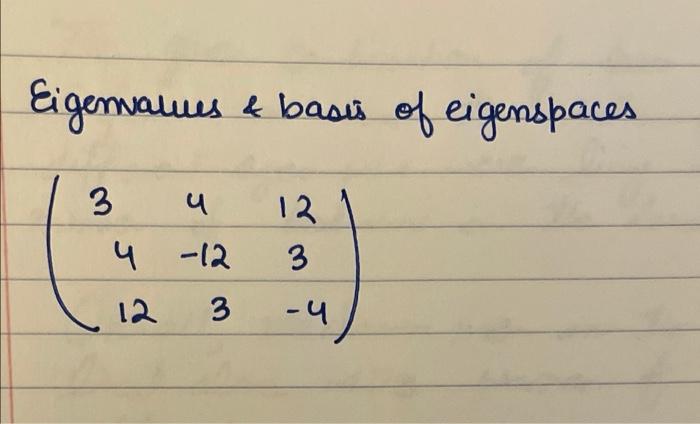 Eigenvalues & basis of eigenspaces
3 4 12
4 -12 3
12 3 -4